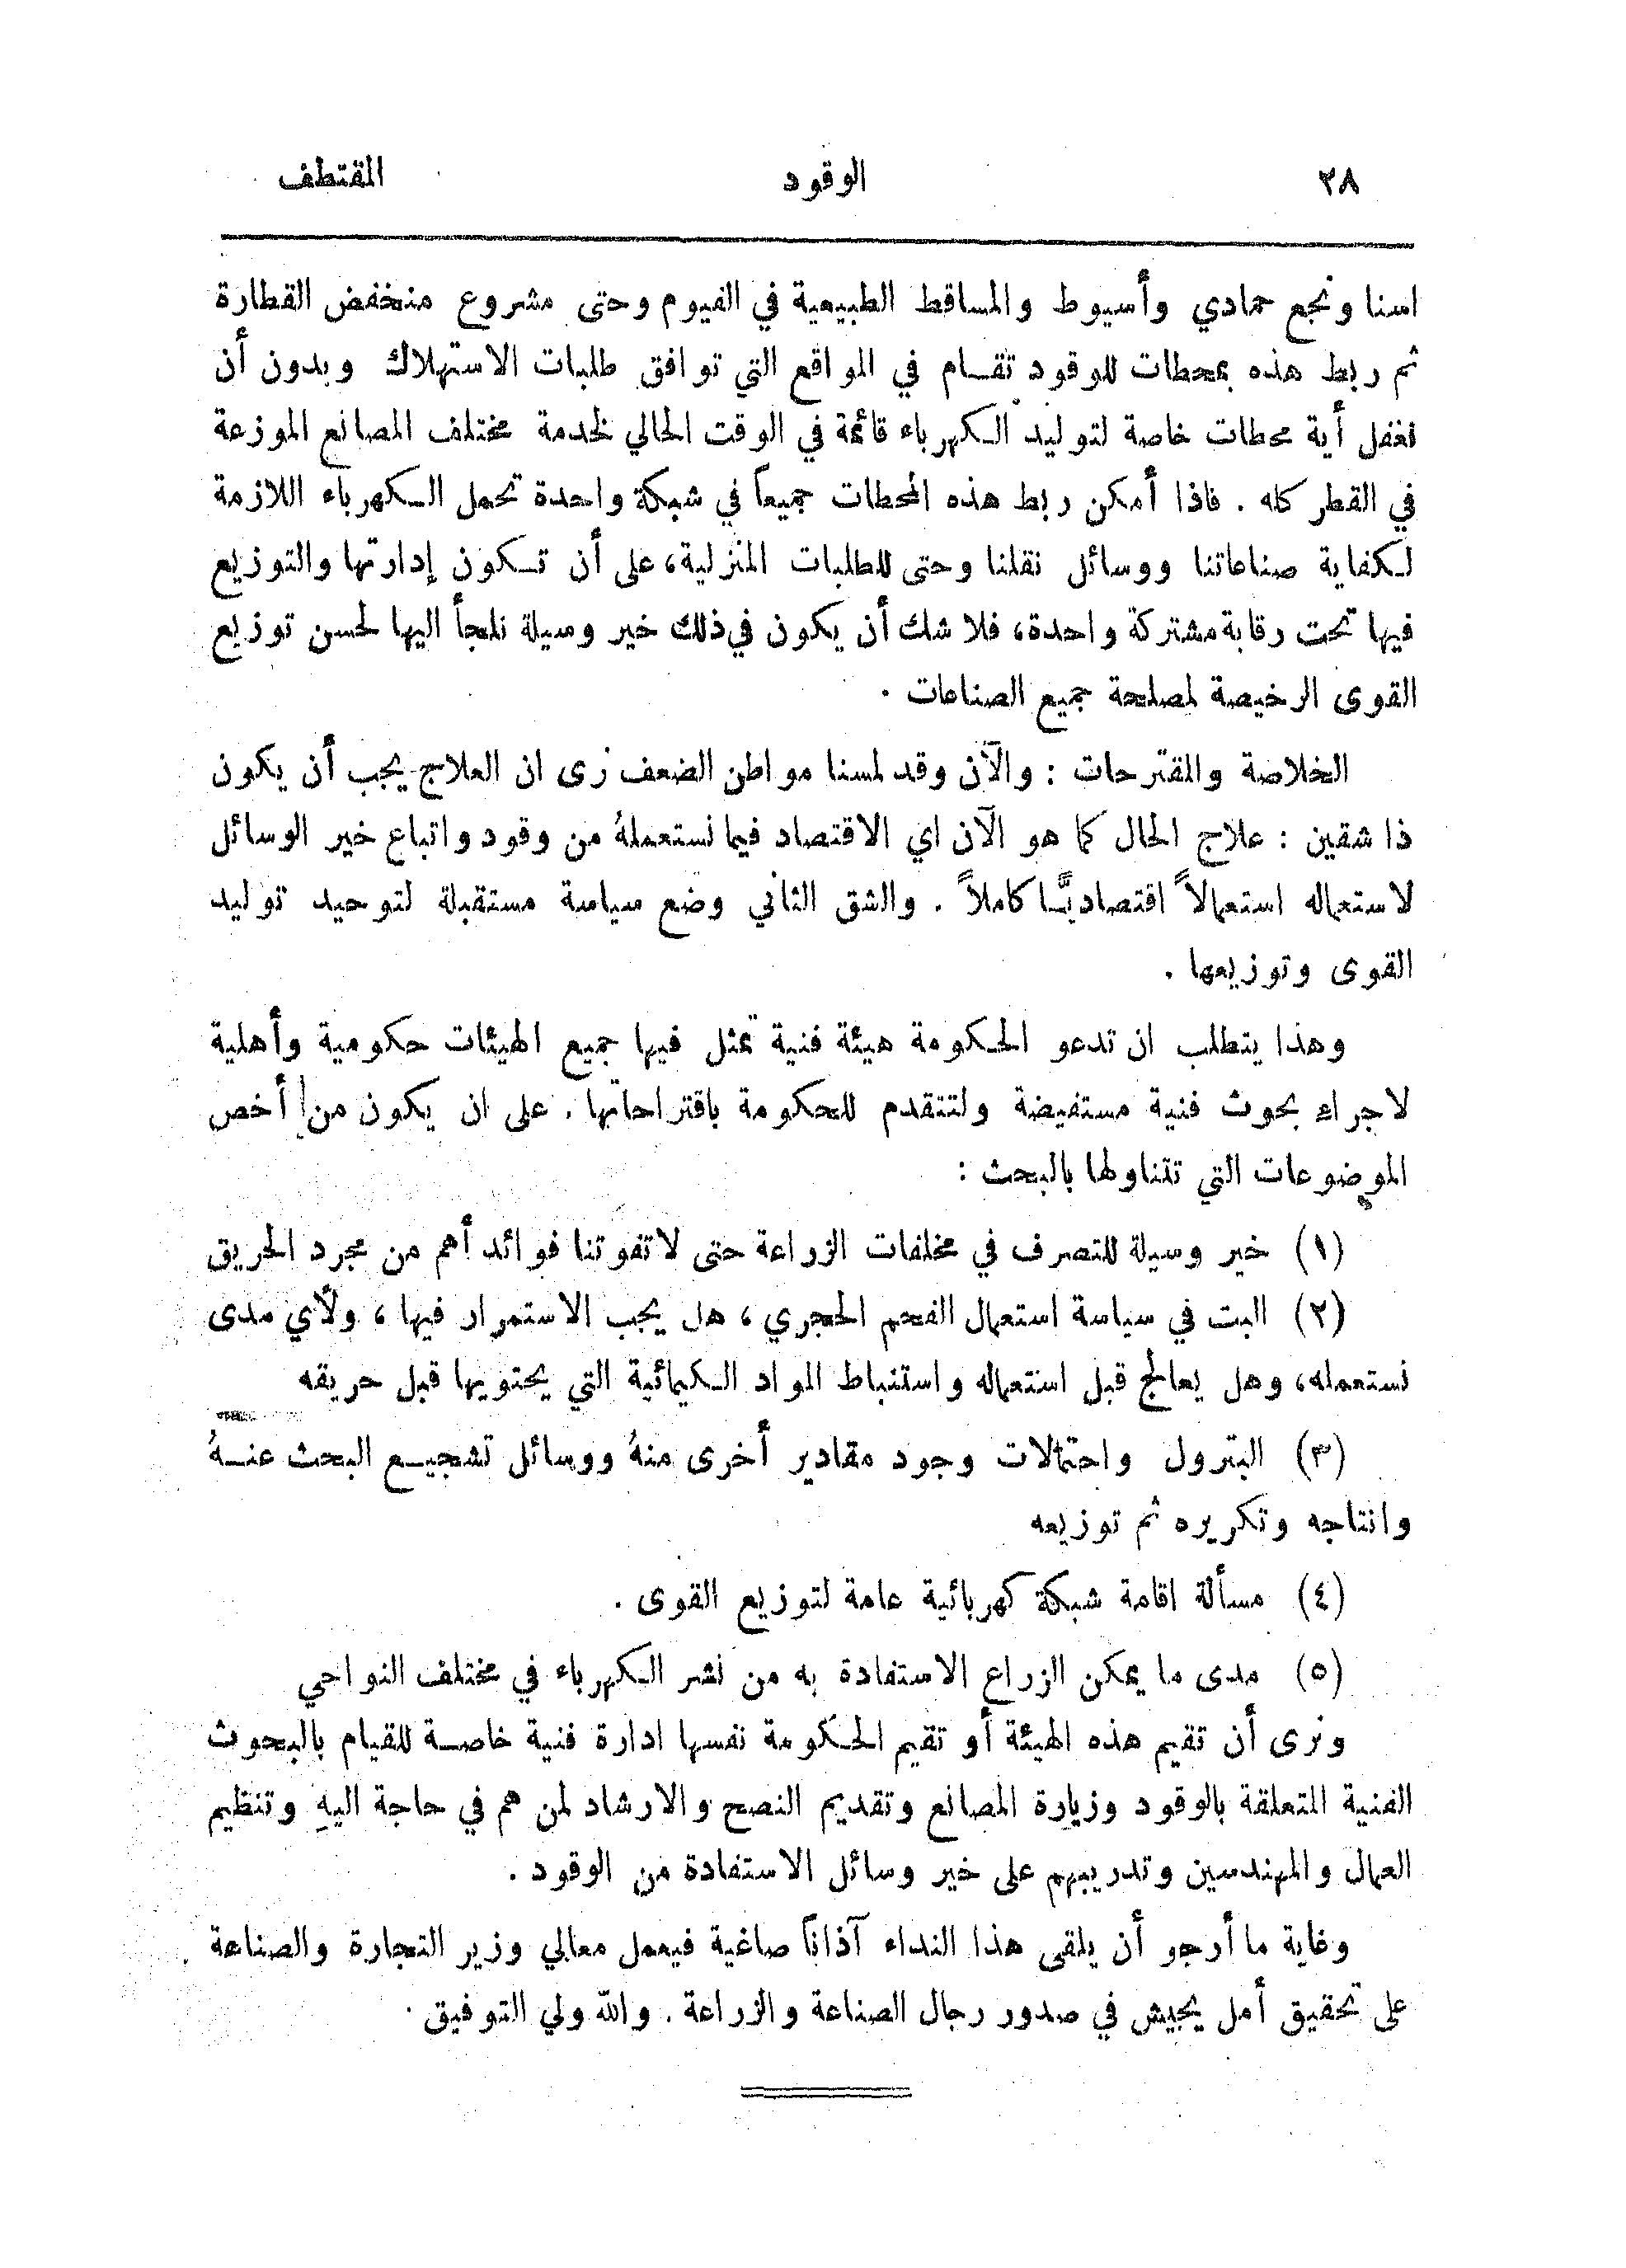 ٢٨ الوقود المقتطف
اسنا ونجع حمادي وأسيوط والمساقط الطبيعية في الفيوم وحتى مشروع منخفض القطارة
ثم ربط هذه بمحطات للوقود تقـام في المواقع التي توافق طلبات الاستهلاك وبدون أن
نغفل أية محطات خاصة لتوليد الكهرباء قائمة في الوقت الحالي لخدمة مختلف المصانع الموزعة
في القطر كله . فاذا أمكن ربط هذه المحطات جميعاً في شبكة واحدة تحمل الكهرباء اللازمة
لكفاية صناعاتنا ووسائل نقلنا وحتى للطلبات المنزلية، على أن تكون إدارتها والتوزيع
فيها تحت رقابة مشتركة واحدة، فلا شك أن يكون في ذلك خير وسيلة نلجأ اليها لحسن توزيع
القوى الرخيصة لمصلحة جميع الصناعات .
الخلاصة والمقترحات : والآن وقد لمسنا مواطن الضعف نرى ان العلاج يجب أن يكون
ذا شقين : علاج الحال كما هو الآن اي الاقتصاد فيما نستعملهُ من وقود واتباع خير الوسائل
لاستعماله استعمالاً اقتصاديًّا كاملاً . والشق الثاني وضع سياسة مستقبلة لتوحيد توليد
القوى وتوزيعها .
وهذا يتطلب ان تدعو الحكومة هيئة فنية تمثل فيها جميع الهيئات حكومية وأهلية
لاجراء بحوث فنية مستفيضة ولتتقدم للحكومة باقتراحاتها . على ان يكون من أخص
الموضوعات التي تتناولها بالبحث :
(١) خير وسيلة للتصرف في مخلفات الزراعة حتى لا تفوتنا فوائد أهم من مجرد الحريق
(٢) البت في سياسة استعمال الفحم الحجري ، هل يجب الاستمرار فيها ، ولأي مدى
نستعمله، وهل يعالج قبل استعماله واستنباط المواد الكيمائية التي يحتويها قبل حريقه
(٣) البترول واحتمالات وجود مقادير أخرى منهُ ووسائل تشجيـع البحث عنـهُ
وانتاجه وتكريره ثم توزيعه
(٤) مسألة اقامة شبكة كهربائية عامة لتوزيع القوى .
(٥) مدى ما يمكن الزراع الاستفادة به من نشر الكهرباء في مختلف النواحي
ونرى أن تقيم هذه الهيئة أو تقيم الحكومة نفسها ادارة فنية خاصـة للقيام بالبحوث
الفنية المتعلقة بالوقود وزيارة المصانع وتقديم النصح والارشاد لمن هم في حاجة اليهِ وتنظيم
العمال والمهندسين وتدريبهم على خير وسائل الاستفادة من الوقود .
وغاية ما أرجو أن يلقى هذا النداء آذاناً صاغية فيعمل معالي وزير التجارة والصناعة
على تحقيق أمل يجيش في صدور رجال الصناعة والزراعة . والله ولي التوفيق .